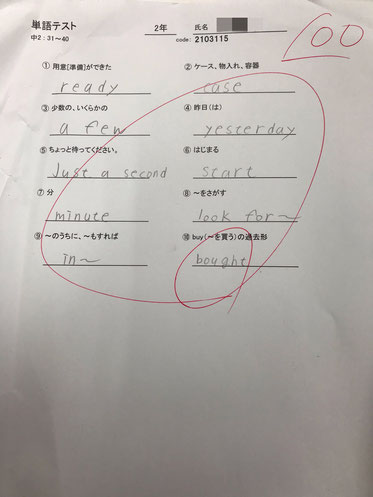 単語テスト
中2：31～40
2年
氏名
code: 2103115
100
① 用意[準備]ができた
② ケース、物入れ、容器
ready
case
③ 少数の、いくらかの
④ 昨日(は)
a few
yesterday
⑤ ちょっと待ってください。
⑥ はじまる
Just a second
start
⑦ 分
⑧ ～をさがす
minute
look for～
⑨ ～のうちに、～もすれば
⑩ buy(～を買う)の過去形
in～
bought